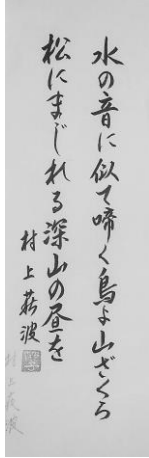 水の音に似て啼く鳥よ山ざくら
松にまじれる深山の昼を
村上萩波
村上萩波